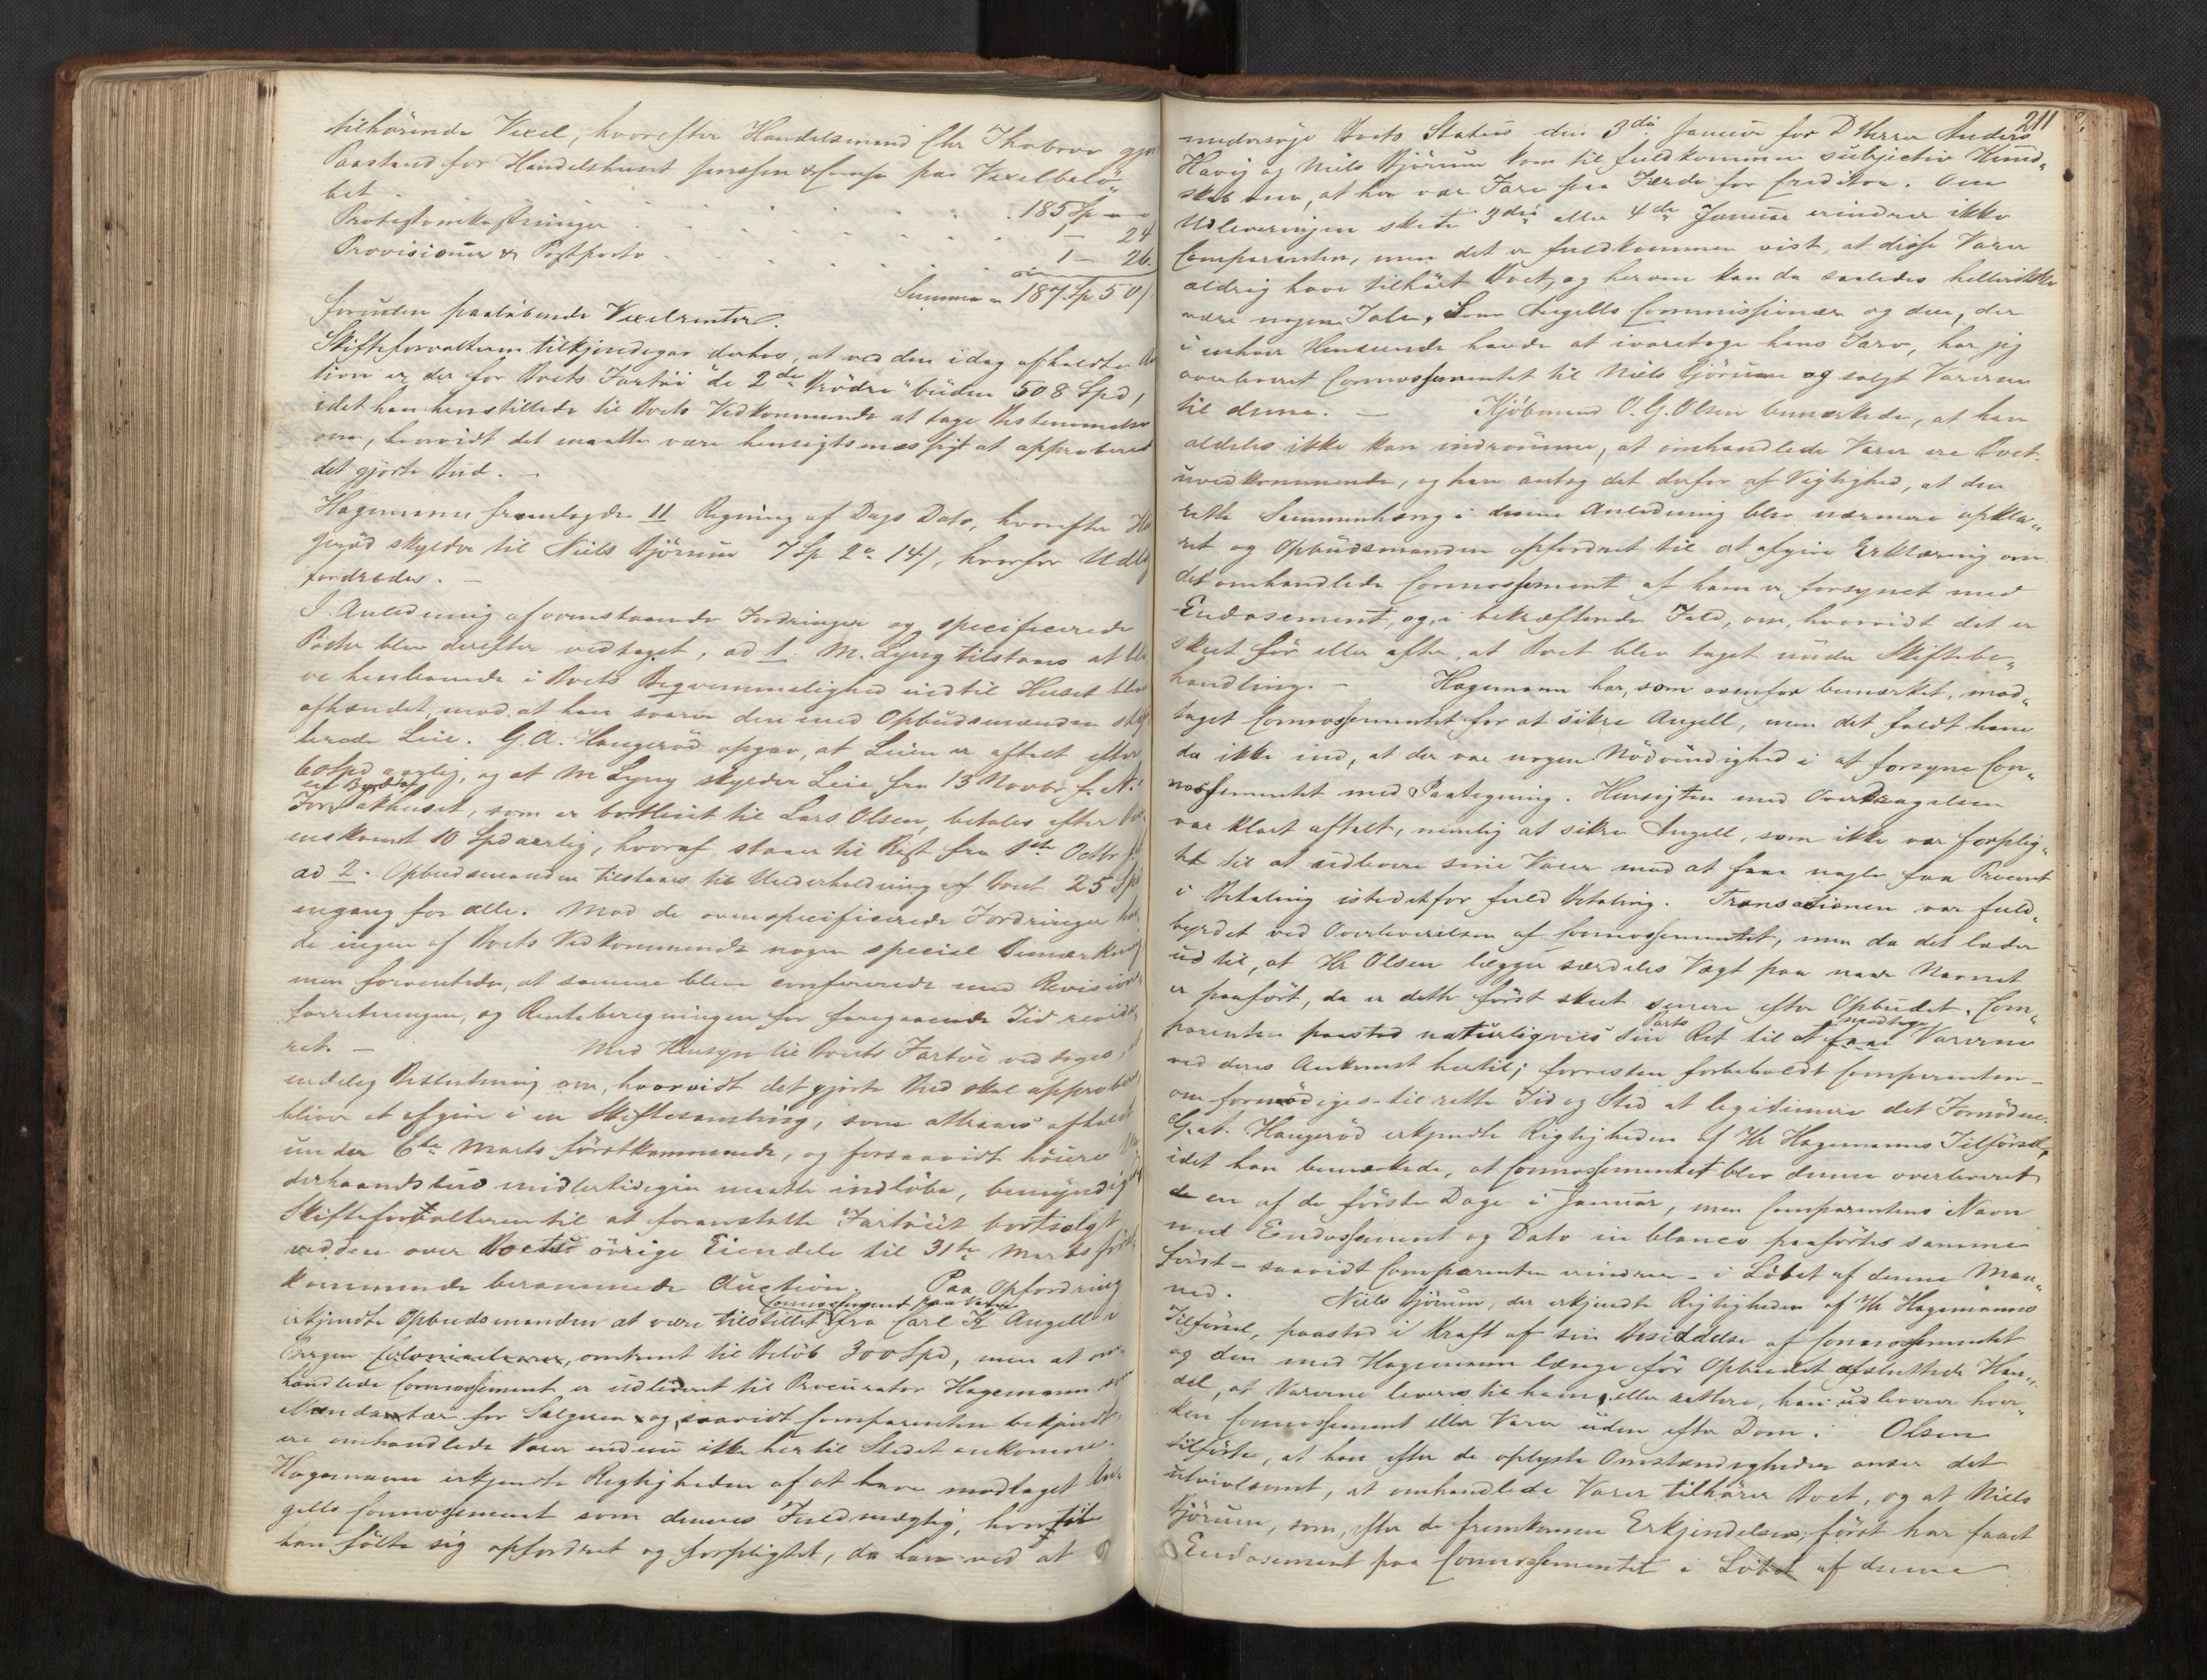 tilhørende Vexel, hvorefter Handelsmand Chr Thobroe gjor
Paastand for Handelshuset Jenssen & Comp paa Vexelbelø„
bet . . . . . 185 Sp „ „
Protestomkostninger . . . . . 1 – 24
Provisioner & Postporto . . . . . 1 – 26.
Summa „ 187 Sp 50 /
foruden paaløbende Vexelrenter.
Skifteforvalteren tilkjendegav derhos, at ved den idag afholdte Au
tion er der for Boets Fartøi "de 2de Brødre" buden 508 Spd,
idet han henstillede til Boets Vedkommende at tage Bestemmelse
om, hvorvidt det maatte være hensigtsmæssigt at approberet
det gjorte Bud. –
Hagemann fremlagde 11 Regning af Dags Dato, hvorefter Ha
gerød skylder til Niels Bjørum 7 Sp 2 14 /, hvorfor Udlæg
fordredes. –
I Anledning af ovenstaaende Fordringer og specificerede
Poster blev derefter vedtaget, ad 1. M. Lyng tilstaaes at bli
ve henboende i Boets Begvemmelighed indtil Huset bliver
afhændet, mod at han svarer den med Opbudsmanden
Leie. G. A. Haugerød opgav, at Leien er aftalt efter
60 Spd aarlig, og at M Lyng skylder Leie fra 13 Novbr f. A.
For en Bygdel akhuset, som er bortleiet til Lars Olsen, betales efter Over
enskomst 10 Spd aarlig, hvoraf staaer til Rest fra 1ste Octbr f.
ad 2. Opbudsmanden tilstaaes til Underholdning af Boet 25 Spd
engang for alle. Mod de ovenspecificerede Fordringer hav
de ingen af Boets Vedkommende nogen special Bemærkning
men forventede, at samme bleve confererede med Revisions
forretningen, og Renteberegningen for foregaaende Tid revide
ret. – Med Hensyn til Boets Fartøi vedtoges, at
endelig Beslutning om, hvorvidt det gjorte Bud skal approberes,
bliver at afgive i en Skiftesamling, som attraaes afholdt
inden 6te Marts førstkommende, og forsaavidt høiere Un
derhaandsbud midlertidigen maatte indløbe, bemyndiges
Skifteforvalteren til at foranstalte Fartøiet bortsolgt
ved den over Boets øvrige Eiendele til 31te Marts først
kommende berammede Auction. Paa Opfordring
erkjendte Opbudsmanden at være tilstillet Connossement paa Varer fra Carl K Angell i
Bergen Colonialvarer, omtrent til Beløb 300 Spd, men at om„
handlede Connossement er udleveret til Procurator Hagemann som
Mandatær for Sælgeren og, saavidt Comparenten bekjendt,
ere omhandlede Varer endnu ikke her til Stedet ankomne.
Hagemann erkjendte Rigtigheden af at have modtaget An
gells Connossement som dennes Fuldmægtig, hvortil
han følte sig opfordret og forpligtet, da han ved at
211
undersøge Boets Status den 3die Januar for D Herrer Anders
Havig og Niels Bjørum kom til fuldkommen subjectiv Kund„
skab om, at her var Fare paa Færde for Creditor. Om
Udleveringen skete 3die eller 4de Januar erindrer ikke
Comparenten, men det er fuldkommen vist, at disse Varer
aldrig have tilhørt Boet, og herom kan da saaledes heller ikke
være nogen Tale. Som Angells Commissionær og den, der
i enhver Henseende havde at ivaretage hans Tarv, har jeg
overleveret Connossementet til Niels Bjørum og solgt Varerne
til denne. – Kjøbmand O. G. Olsen bemærkede, at han
aldeles ikke kan indrømme, at omhandlede Varer ere Boet
uvedkommende, og han antog det derfor af Vigtighed, at den
rette Sammenhæng i denne Anledning blev nærmere opkla„
ret og Opbudsmanden opfordret til at afgive Erklæring om
det omhandlede Connossement af ham er forsynet med
Endosement, og, i bekræftende Fald, om, hvorvidt det er
skeet før eller efter, at Boet blev taget under Skiftebe„
handling. – Hagemann har, som ovenfor bemærket, mod„
taget Connossementet for at sikre Angell, men det faldt ham
da ikke ind, at der var nogen Nødvendighed i at forsyne Con„
nossementet med Paategning. Hensigten med Overdragelsen
var klart aftalt, nemlig at sikre Angell, som ikke var forplig„
tet til at udlevere sine Varer mod at faae nogle faa Procent
i Betaling istedetfor fuld Betaling. Transactionen var fuld„
byrdet ved Overleverelsen af Connossementet, men da det lader
ud til, at Hr Olsen lægger særdeles Vægt paa naar Navnet
er paaført, da er dette først skeet senere efter Opbudet. Com„
parenten paastod naturligviis sin Parts Ret til at faae modtage Varerne
ved deres Ankomst hertil; forresten forbeholdt Comparenten –
om formødiges – til rette Tid og Sted at legitimere det Fornødne.
G. A. Haugerød erkjendte Rigtigheden af Hr Hagemanns Tilførsel,
idet han bemærkede, at Connossementet blev denne overleveret
en af de første Dage i Januar, men Comparentens Navn
med Endossement og Dato in blanco paaførtes samme
først – saavidt Comparenten erindrer – i Løbet af denne Maa„
ned. Niels Bjørum, der erkjendte Rigtigheden af Hr Hagemanns
Tilførsel, paastod i Kraft af sin Besiddelse af Connossementet
og den med Hagemann længe før Opbudet afsluttede Han„
del, at Varerne leveres til ham, eller rettere, han udleverer hver„
ken Connossement eller Varer uden efter Dom. Olsen
tilførte, at han efter de oplyste Omstændigheder anser det
utvivlsomt, at omhandlede Varer tilhører Boet, og at Niels
Bjørum, som, efter de fremkomne Erkjendelser, først har faaet
Endosement paa Connossementet i Løbet af denne